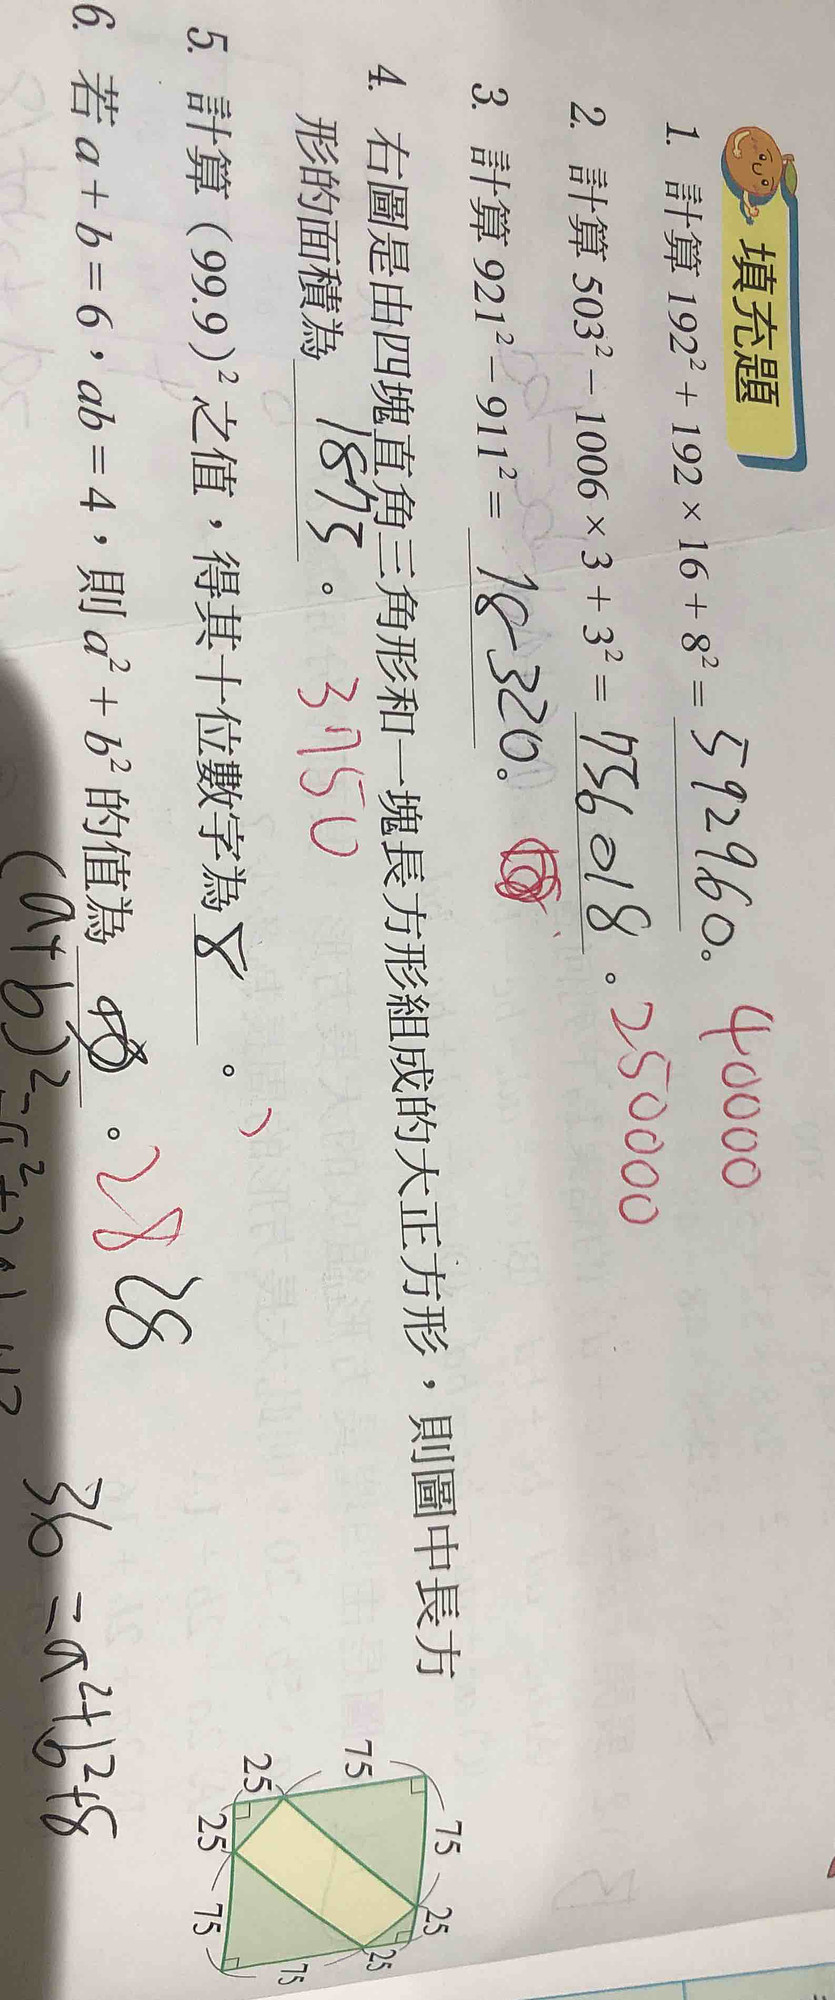 填充題
1. 計算 192² + 192 × 16 + 8² = 592960。 40000
2. 計算 503² − 1006 × 3 + 3² = 756018。 250000
3. 計算 921² − 911² = 18320。
4. 右圖是由四塊直角三角形和一塊長方形組成的大正方形，則圖中長方
形的面積為 1875。 3750
5. 計算 (99.9)² 之值，得其十位數字為 8。
6. 若 a + b = 6，ab = 4，則 a² + b² 的值為 。 28 28
36 = a² + b² + 8
75
75
25
25
25
25
75
75